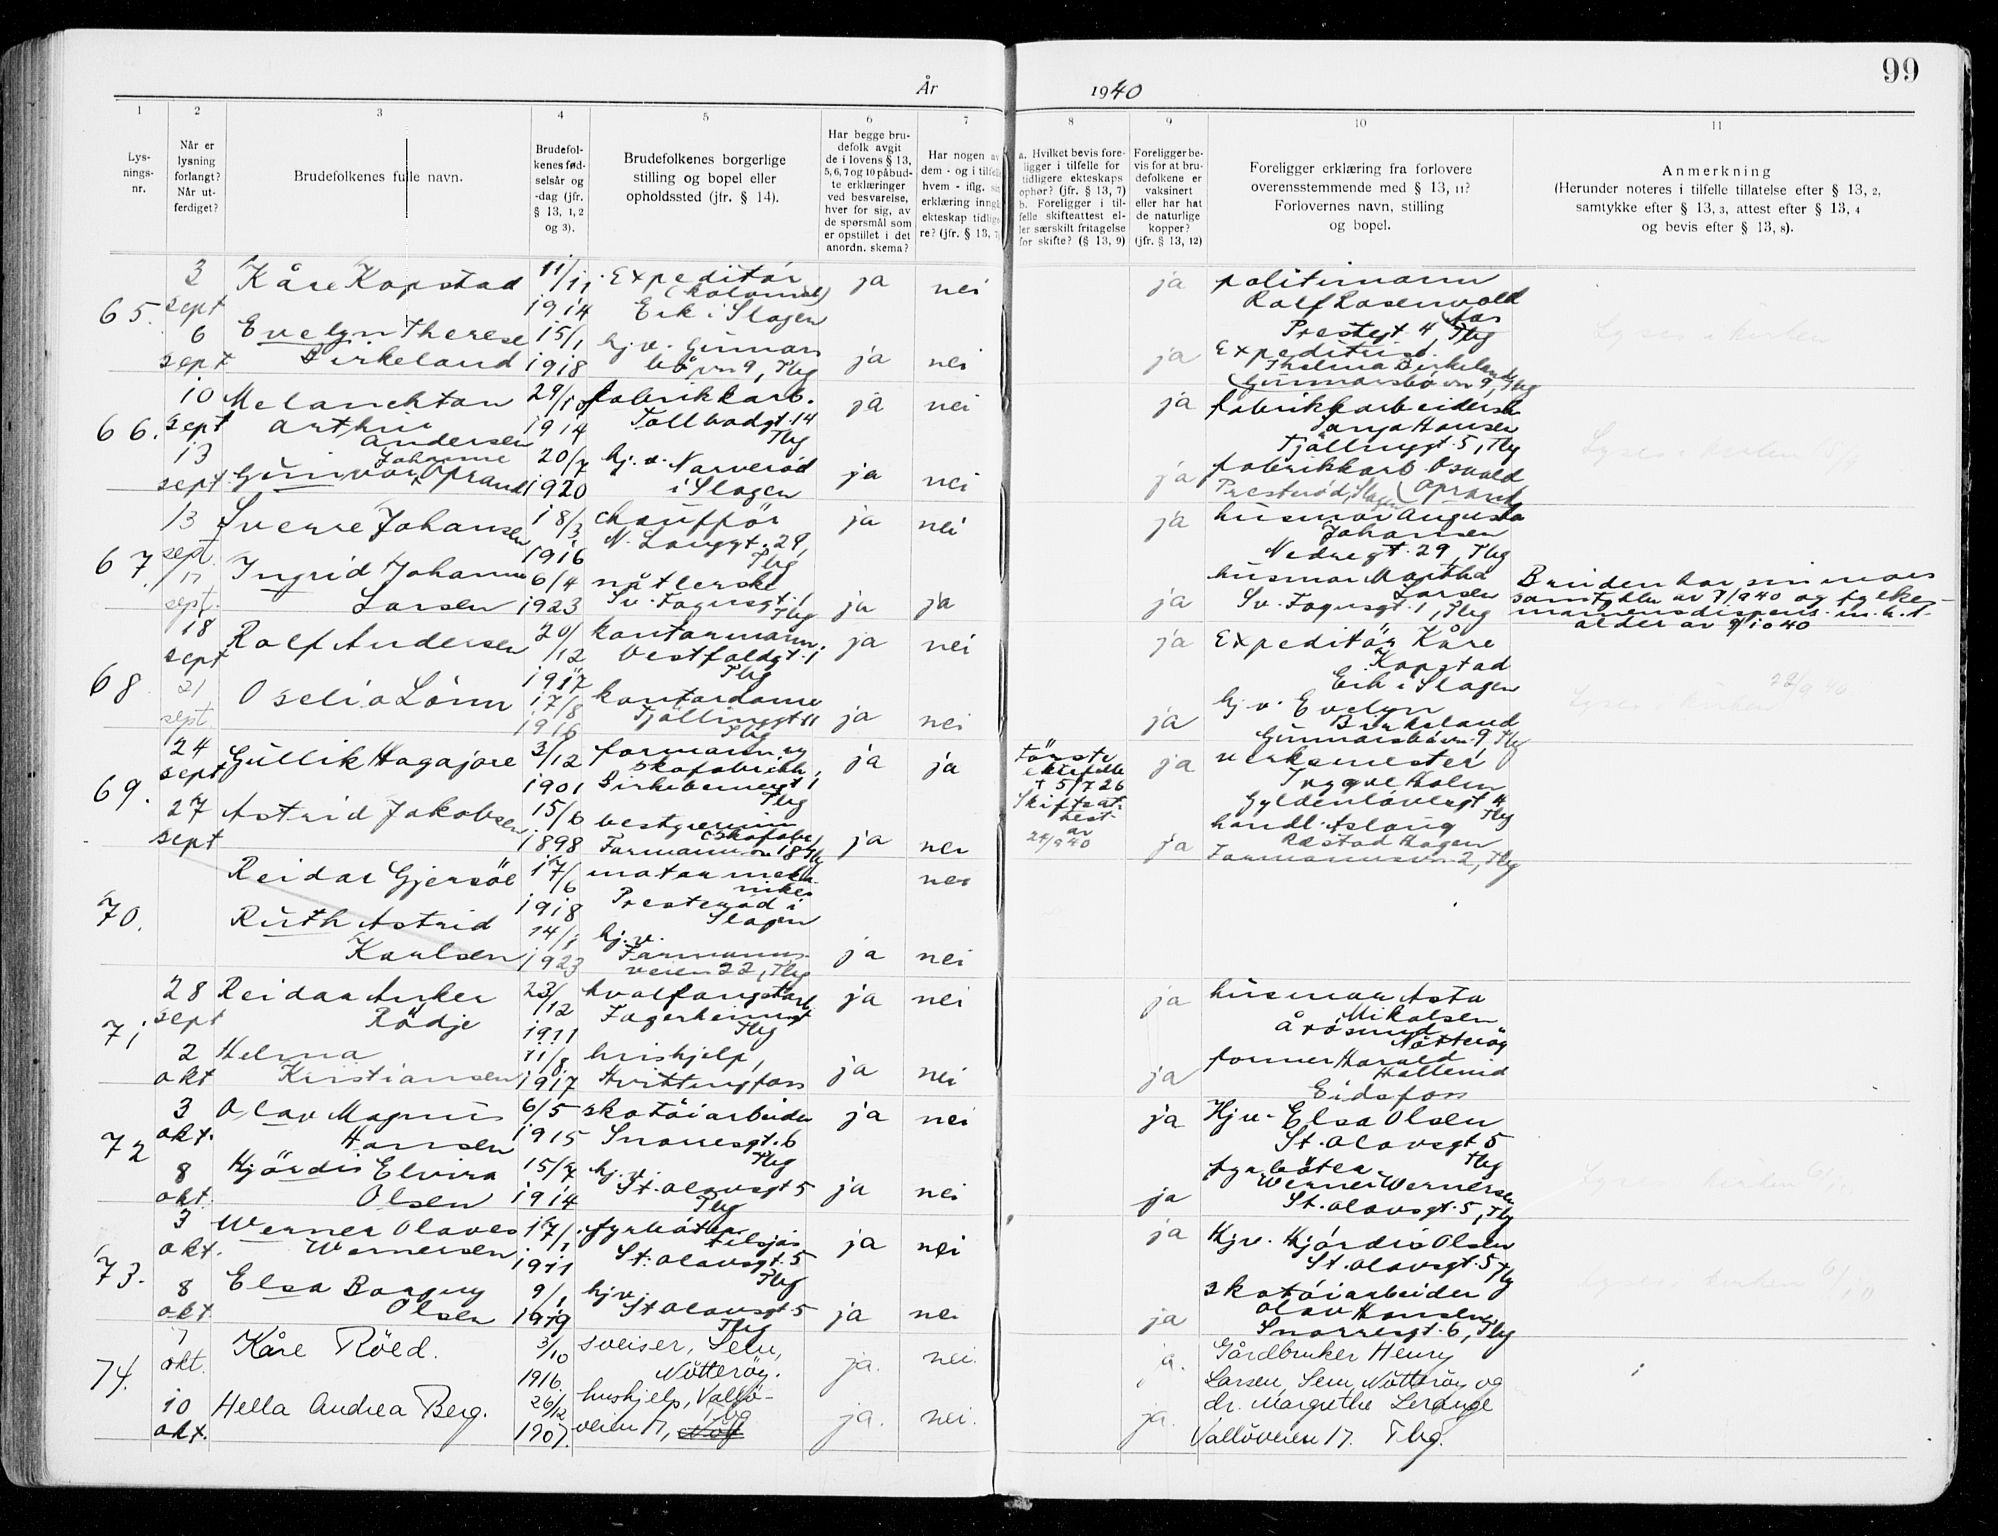 99
År
1940
1
2
3
4
5
6
7
8
9
10
11
Lys-
nings-
nr.
Når er
lysning
forlangt?
Når ut-
ferdiget?
Brudefolkenes fulle navn.
Brudefol-
kenes fød-
selsår og
-dag (jfr.
§ 13, 1, 2
og 3).
Brudefolkenes borgerlige
stilling og bopel eller
opholdssted (jfr. § 14).
Har begge bru-
defolk avgit
de i lovens § 13,
5, 6, 7 og 10 påbud-
te erklæringer
ved besvarelse,
hver for sig, av
de spørsmål som
er opstillet i det
anordn. skema?
Har nogen av
dem - og i tilfelle
hvem - iflg. sin
erklæring inngå
ekteskap tidlige
re? (jfr. § 13, 7)
a. Hvilket bevis fore-
ligger i tilfelle for
tidligere ekteskaps
ophør? (jfr. § 13, 7)
b. Foreligger i til-
felle skifteattest el-
ler særskilt fritagelse
for skifte? (§ 13, 9)
Foreligger be-
vis for at bru-
defolkene er
vaksinert
eller har hat
de naturlige
kopper?
(jfr. § 13, 12)
Foreligger erklæring fra forlovere
overensstemmende med § 13, 11?
Forlovernes navn, stilling
og bopel.
Anmerkning
(Herunder noteres i tilfelle tillatelse efter § 13, 2,
samtykke efter § 13, 3, attest efter § 13, 4
og bevis efter § 13, 8).
65.
3
sept
Kåre Kopstad
11/11
1914
Expeditör
(kolonial)
Eik i Slagen
ja
nei
ja
politimann
Rolf Rosenvold
Prestegt 4, Tbg
6
sept
Evelyn Therese
Birkeland
15/1
1918
hj.v. Gunnars
bövn 9, Tbg
ja
nei
ja
Expeditrise
Thelma Birkeland
Gunnarsbövn 9, Tbg
Lyses i kirken
66.
10
sept
Melanchton
Arthur
Andersen
29/10
1914
fabrikkarb.
Tollbodgt. 14
Tbg
ja
nei
ja
fabrikkarbeiderske
Tanja Hansen
Tjöllinggt. 5, Tbg
13
sept
Gunvor Johanne Oprand
20/7
1920
hj.v. Narveröd
i Slagen
ja
nei
ja
fabrikkarb. Osvald
Oprand
Presteröd, Slagen
Lyses i kirken 15/9
67.
13
sept.
Sverre Johansen
18/3
1916
chaufför
N. Langgt. 29,
Tbg
ja
nei
ja
husmor Augusta
Johansen
Nedregt. 29, Tbg
17
sept.
Ingrid Johanne
Larsen
6/4
1923
nåtlerske
Sv. Foynsgt. 1,
Tbg
ja
ja
ja
husmor Martha
Larsen
Sv. Foynsgt. 1, Tbg
Bruden har sin mors
samtykke av 7/9 40 og fylke-
mannensdispens. m.h.t.
alder av 9/10 40
68.
18
sept
Rolf Andersen
20/12
1917
kontormann
Vestfoldgt. 1
Tbg
ja
nei
ja
Expeditör Kåre
Kopstad
Eik i Slagen
21
sept.
Oselia Lönn
17/8
1916
kontordame
Tjöllinggt 11
Tbg
ja
nei
ja
hj.v. Evelyn
Birkeland
Gunnarsbövn. 9, Tbg
Lyses i kirken 22/9 40
69.
24
sept
Gullik Hagajore
3/12
1901
formann v
skofabrikk,
Birkebeinergt 1
Tbg
ja
ja
förste
ektefelle
† 5/7 26
Skifteat-
test
av
24/9 40
ja
verksmester
Trygve Holm
Gyldenlövesgt 4
Tbg
27
sept
Astrid Jakobsen
15/6
1898
bestyrerinne
(skofabr)
Farmannsvn 18 Tbg
ja
nei
ja
handl. Aslaug
Röstad Hagen
Farmannsvn 2, Tbg
70.
Reidar Gjersöe
17/6
1918
motormeka-
niker
Presteröd i
Slagen
nei
Ruth Astrid
Karlsen
14/1
1923
hj.v.
Farmanns-
veien 22, Tbg
ja
nei
71
28
sept
Reidar Anker
Rödje
23/12
1911
hvalfangstarb
Fagerheimgt
Tbg
ja
nei
ja
husmor Asta
Mikalsen
Årösund
Nötteröy
2
okt
Helma
Kristiansen
11/8
1917
hushjelp,
Hvittingfoss
ja
nei
ja
former Harald
Eidsfoss
72
3
okt.
Olav Magnus
Hansen
6/5
1915
skotöiarbeider
Snorresgt. 6
Tbg
ja
nei
ja
Hjv. Elsa Olsen
St. Olavsgt 5
Tbg
8
okt.
Hjördis Elvira
Olsen
15/7
1914
hj.v.
St. Olavsgt 5
Tbg
ja
nei
ja
fyrböter
Werner Wernersen
St. Olavsgt. 5, Tbg
Lyses i kirken 6/
73.
3
okt.
Werner Olaves
Wernersen
17/1
1911
fyrböter
tilsjös
St. Olavsgt. 5
Tbg
ja
nei
ja
Hjv. Hjördis Olsen
St. Olavsgt. 5 Tbg
8
okt.
Elsa Borgny
Olsen
9/1
1919
hjv.
St Olavsgt 5
Tbg
ja
nei
ja
skotöiarbeider
Olav Hansen,
Snorresgt. 6, Tbg
Lyses i kirken 6/10
74.
7
okt.
Kåre Röed.
3/10
1916.
sveiser, Sem,
Nötteröy.
ja.
nei.
ja.
Gårdbruker Henry
Larsen, Sem, Nötteröy og
10
okt.
Hella Andrea Berg.
26/12
1907.
hushjelp, Vallö-
veien 17, Tbg
ja.
nei.
ja.
dr. Margrethe Lerange
Vallöveien 17. Tbg.